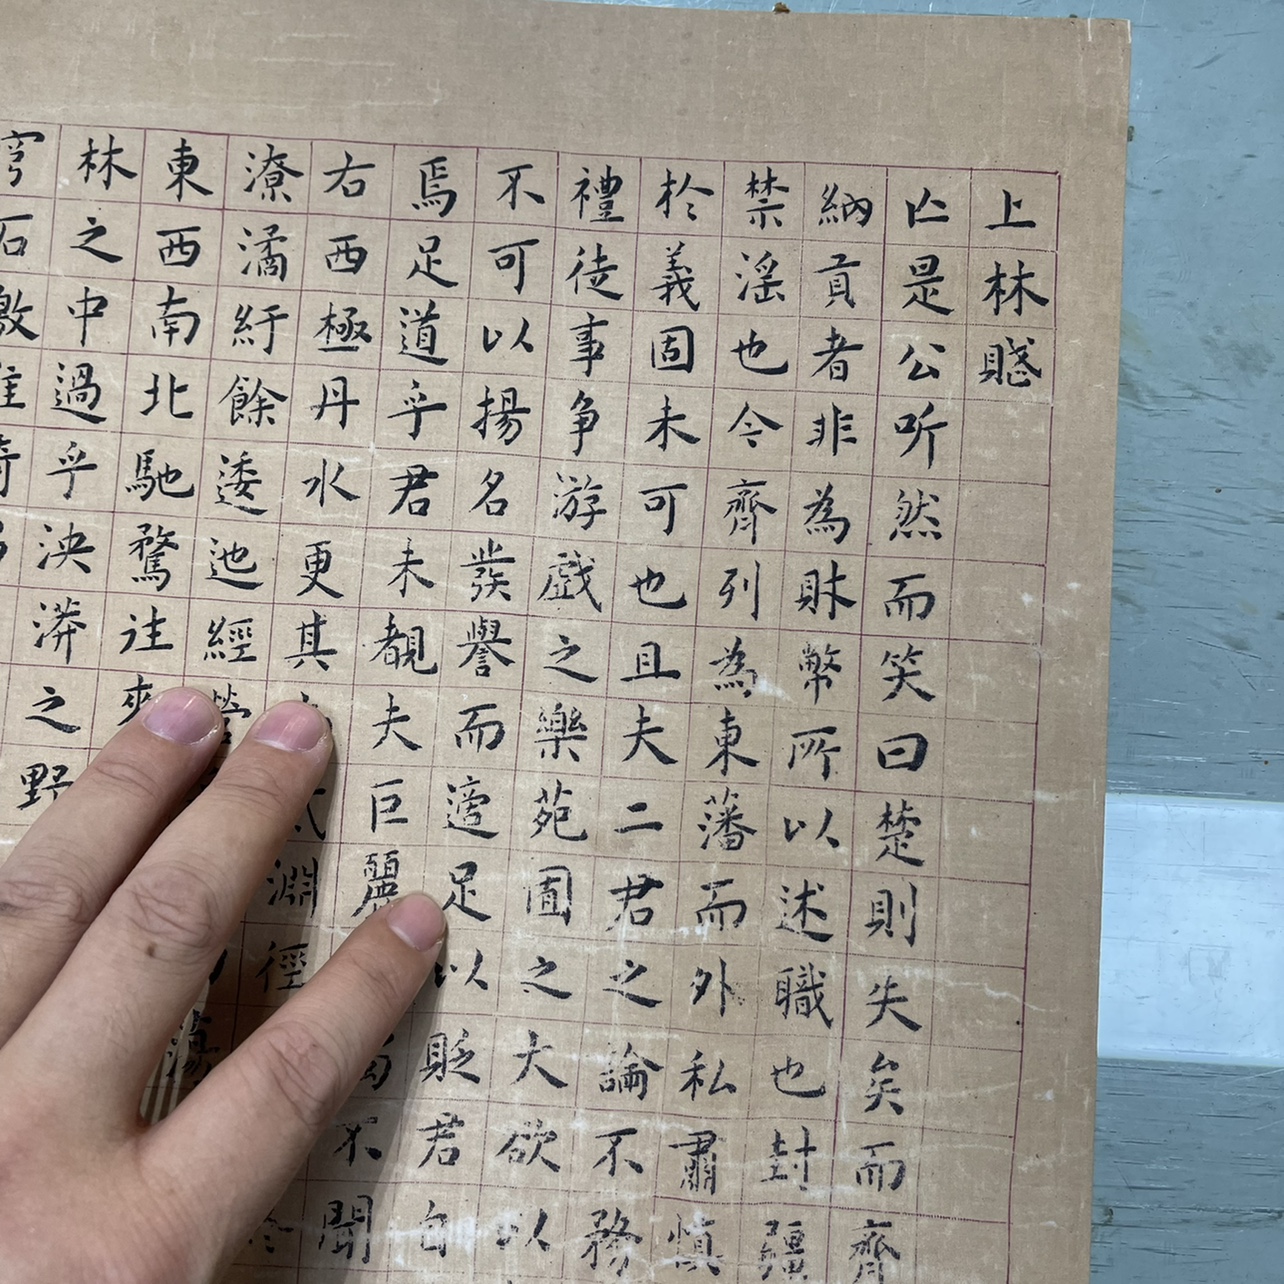 上林賦
亡是公听然而笑曰楚則失矣而齊
納貢者非為財幣所以述職也封疆
禁淫也今齊列為東藩而外私肅慎
於義固未可也且夫二君之論不務
禮徒事争游戲之樂苑囿之大欲以
不可以揚名發譽而適足以貶君自
焉足道乎君未覩夫巨麗不聞
右西極丹水更其淵徑
潦潏紆餘逶迤經營蕩
東西南北馳騖往來
林之中過乎泱漭之野
穹石激堆埼